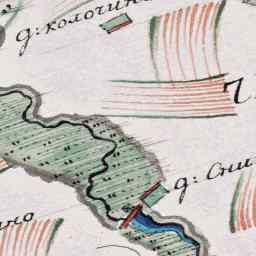 д: колочин
д: Сни
но